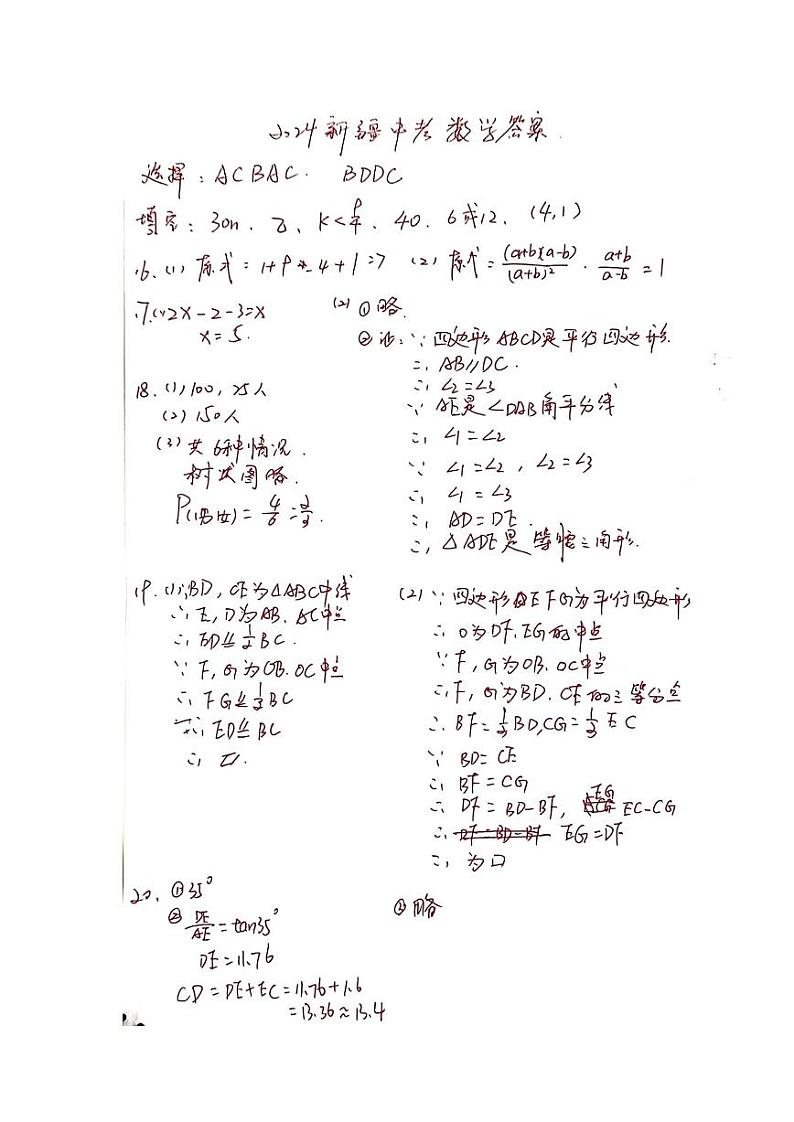 2024新疆中考数学答案
选择：ACBAC. BDDC
填空：30n、乙、K<9/4、40、6或12、(4,1)
16、(1) 原式=1+9-4+1=7 (2) 原式=(a+b)(a-b)/(a+b)²·(a+b)/(a-b)=1
17.(1)2x-2-3=x
x=5.
(2) ①略.
②证：∵四边形ABCD是平行四边形.
∴AB∥DC.
∴∠2=∠3
∵AE是∠DAB角平分线
∴∠1=∠2
∵∠1=∠2，∠2=∠3
∴∠1=∠3
∴AD=DE.
∴△ADE是等腰三角形.
18.(1)100，25人
(2)150人
(3)共6种情况.
树状图略.
P(1男1女)=4/6=2/3.
19.(1)∵BD，CE为△ABC中线
∴E，D为AB、AC中点
∴ED⫽1/2BC.
∵F，G为OB.OC中点
∴FG⫽1/2BC
∴ED⫽BC
∴▱.
(2)∵四边形DEFG为平行四边形
∴O为DF、EG的中点
∵F，G为OB.OC中点
∴F，G为BD、CE的三等分点
∴BF=1/3BD,CG=1/3EC
∵BD=CE
∴BF=CG
∴DF=BD-BF，EG EC-CG
∴DF=BD-BF EG=DF
∴为口
20、①35°
②DE/AE=tan35°
DE=11.76
CD=DE+EC=11.76+1.6
=13.36≈13.4
②略